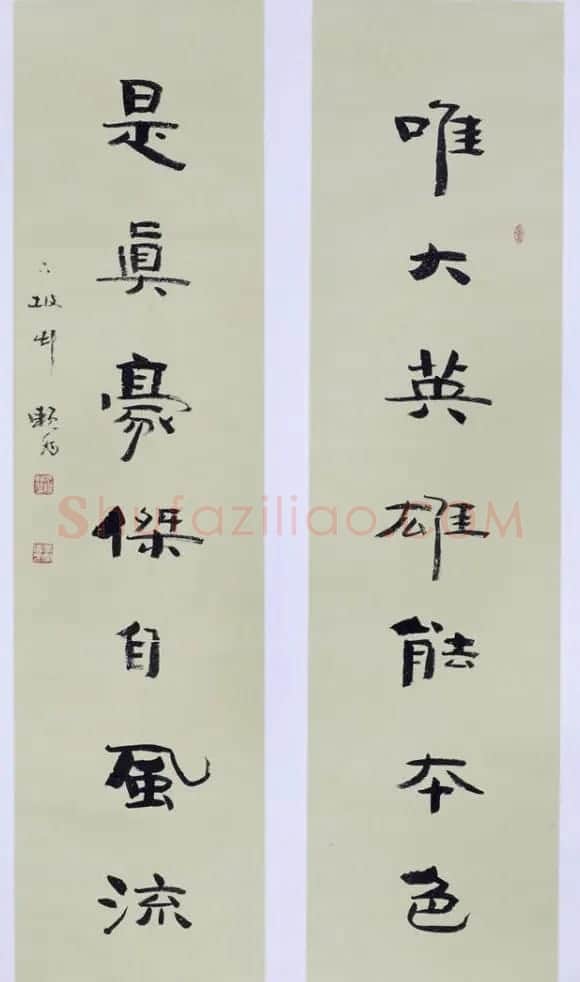 唯大英雄能本色
是眞豪傑自風流
Shufaziliao.COM